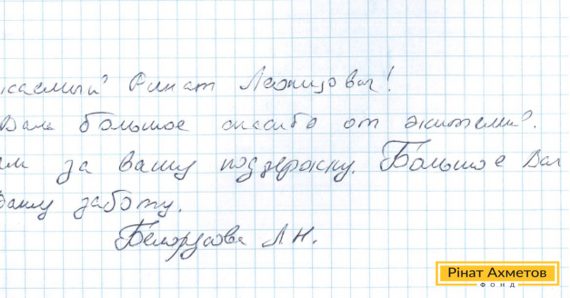 жаемый Ринат Леонидович!
Вам большое спасибо от жителей.
ем за вашу поддержку. Большое Вам
Вашу заботу.
Белоусова Л Н.
Рінат Ахметов
ФОНД